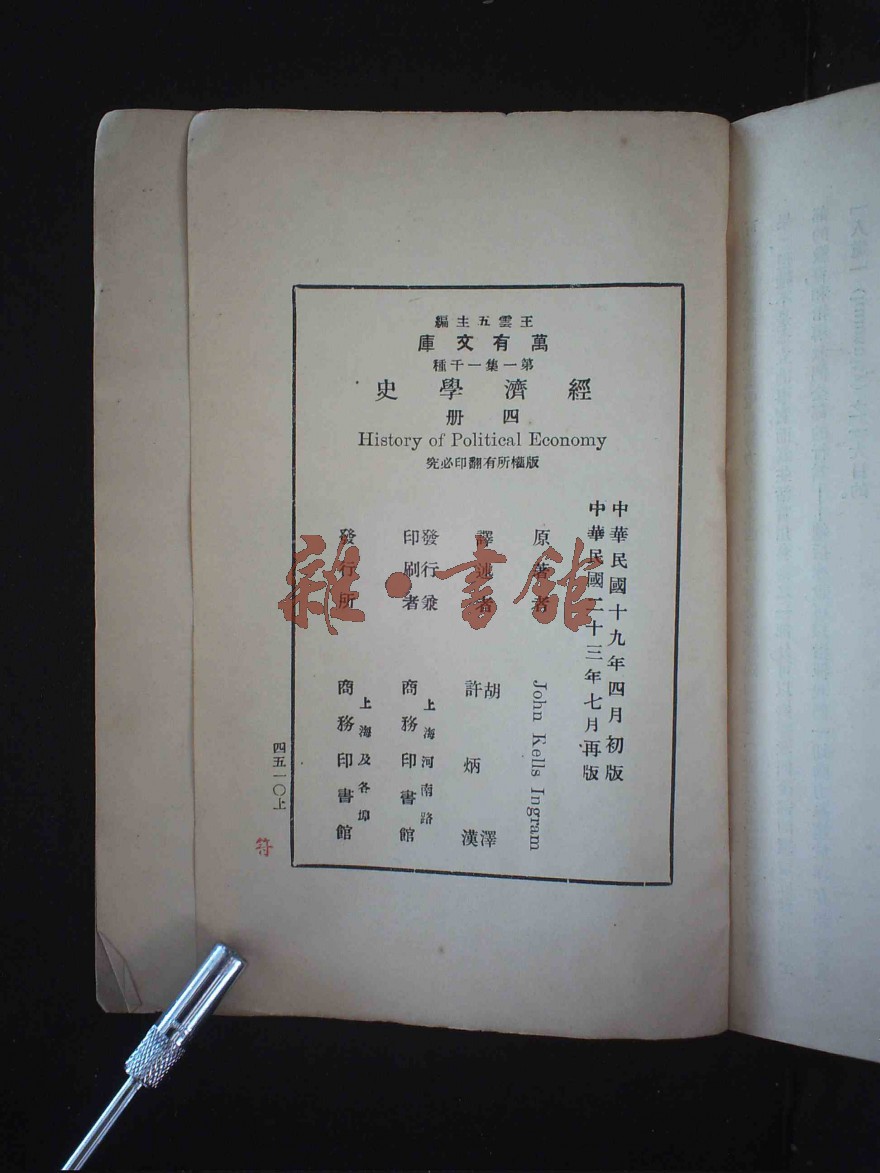 王雲五主編
萬有文庫
第一集一千種
經濟學史
四册
History of Political Economy
版權所有翻印必究
中華民國十九年四月初版
中華民國二十三年七月再版
原著者 John Kells Ingram
譯述者 胡澤 許炳漢
發行兼印刷者 上海河南路 商務印書館
發行所 上海及各埠 商務印書館
四五一〇上
符
雜·書館